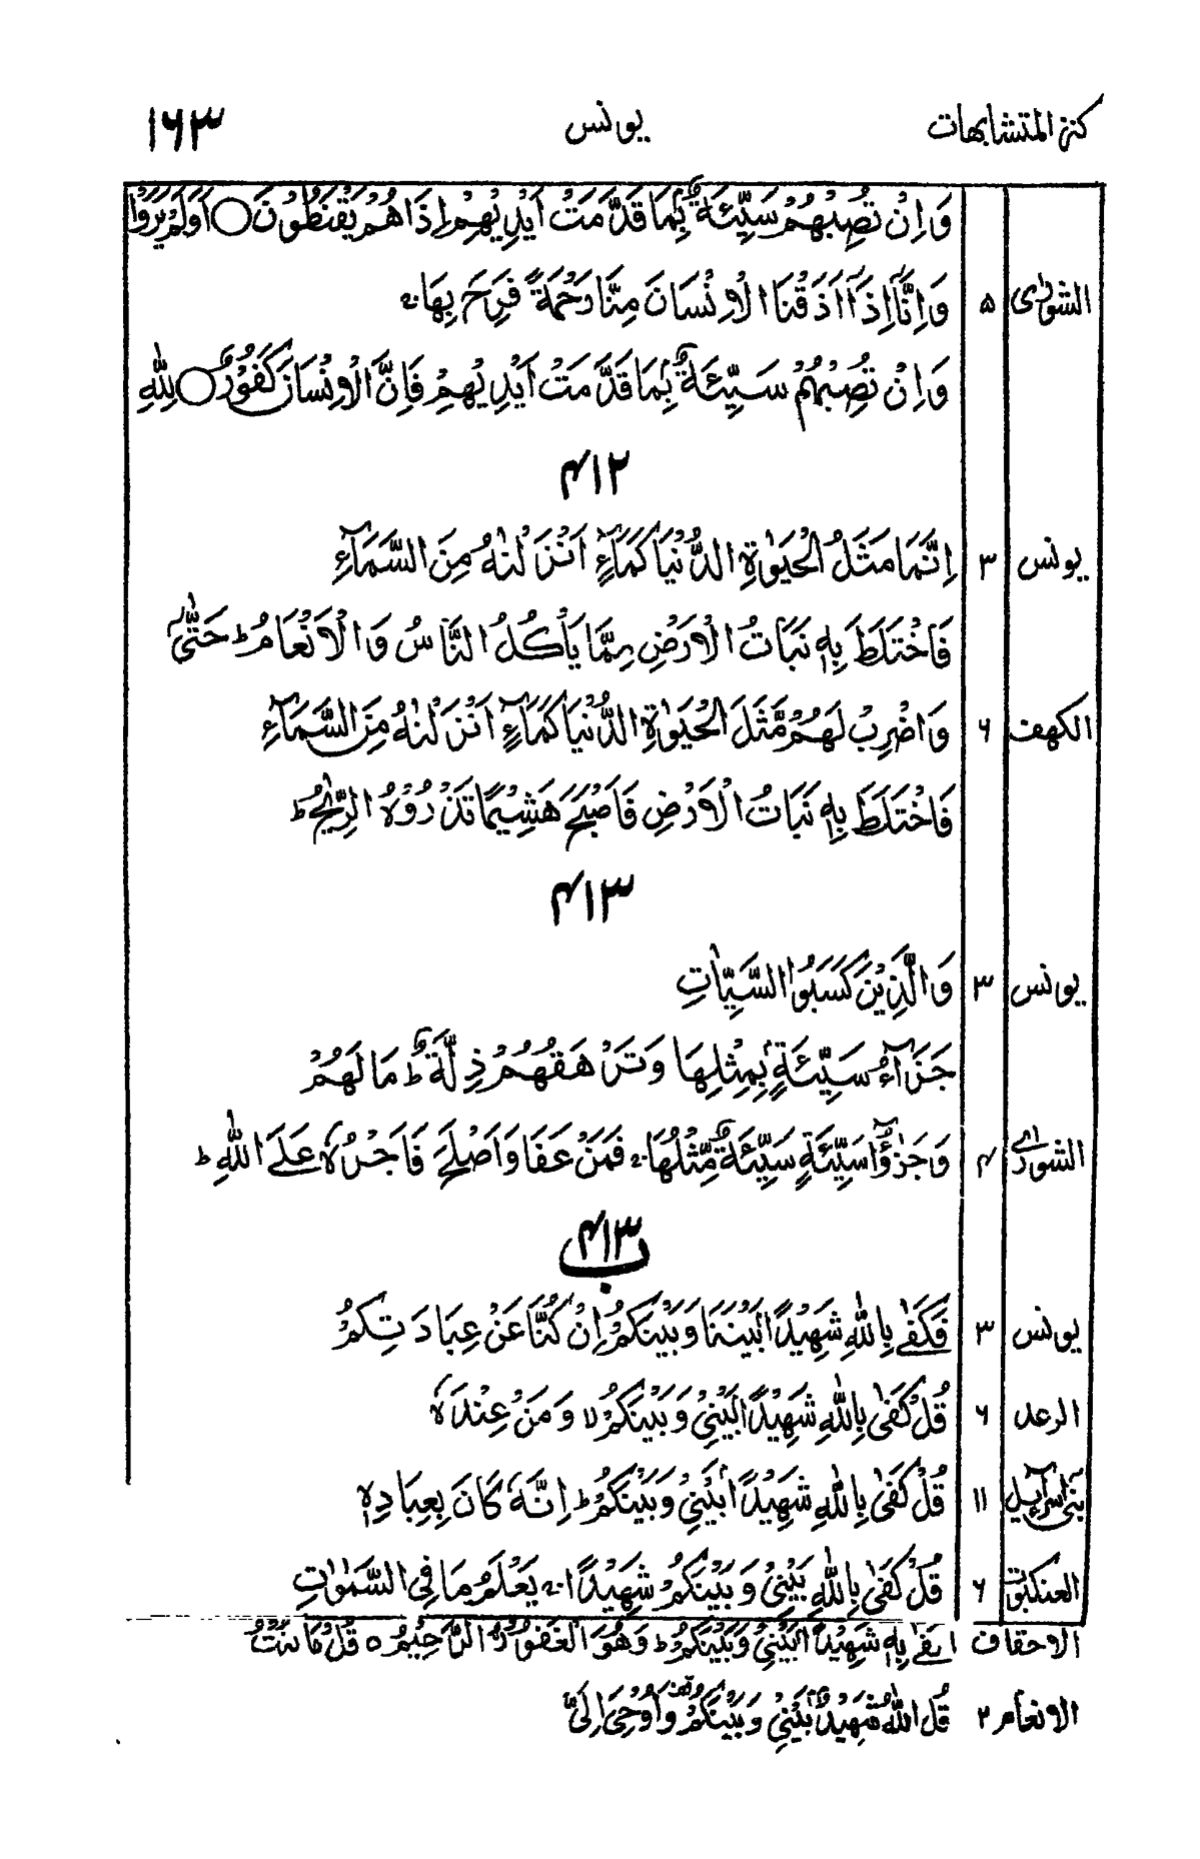 كنز المتشابهات يونس ١٦٣
وَاِنْ تُصِبْهُمْ سَيِّئَةٌۢ بِمَا قَدَّمَتْ اَيْدِيْهِمْ اِذَا هُمْ يَقْنَطُوْنَ ○ اَوَلَمْ يَرَوْا
الشورٰى ٥ وَاِنَّآ اِذَآ اَذَقْنَا الْاِنْسَانَ مِنَّا رَحْمَةً فَرِحَ بِهَا ۚ
وَاِنْ تُصِبْهُمْ سَيِّئَةٌۢ بِمَا قَدَّمَتْ اَيْدِيْهِمْ فَاِنَّ الْاِنْسَانَ كَفُوْرٌ ○ لِلّٰهِ
٤١٢
يونس ٣ اِنَّمَا مَثَلُ الْحَيٰوةِ الدُّنْيَا كَمَآءٍ اَنْزَلْنٰهُ مِنَ السَّمَآءِ
فَاخْتَلَطَ بِهٖ نَبَاتُ الْاَرْضِ مِمَّا يَاْكُلُ النَّاسُ وَالْاَنْعَامُ ؕ حَتّٰٓى
الكهف ٦ وَاضْرِبْ لَهُمْ مَّثَلَ الْحَيٰوةِ الدُّنْيَا كَمَآءٍ اَنْزَلْنٰهُ مِنَ السَّمَآءِ
فَاخْتَلَطَ بِهٖ نَبَاتُ الْاَرْضِ فَاَصْبَحَ هَشِيْمًا تَذْرُوْهُ الرِّيٰحُ ؕ
٤١٣
يونس ٣ وَالَّذِيْنَ كَسَبُوا السَّيِّاٰتِ
جَزَآءُ سَيِّئَةٍۢ بِمِثْلِهَا وَتَرْهَقُهُمْ ذِلَّةٌ ؕ مَا لَهُمْ
الشورٰى ٤ وَجَزٰٓؤُا سَيِّئَةٍ سَيِّئَةٌ مِّثْلُهَا ۚ فَمَنْ عَفَا وَاَصْلَحَ فَاَجْرُهٗ عَلَى اللّٰهِ ؕ
٤١٣ ب
يونس ٣ فَكَفٰى بِاللّٰهِ شَهِيْدًۢا بَيْنَنَا وَبَيْنَكُمْ اِنْ كُنَّا عَنْ عِبَادَتِكُمْ
الرعد ٦ قُلْ كَفٰى بِاللّٰهِ شَهِيْدًۢا بَيْنِيْ وَبَيْنَكُمْ ۙ وَمَنْ عِنْدَهٗ
بنیٓ اسرآءيل ١١ قُلْ كَفٰى بِاللّٰهِ شَهِيْدًۢا بَيْنِيْ وَبَيْنَكُمْ ؕ اِنَّهٗ كَانَ بِعِبَادِهٖ
العنكبوت ٦ قُلْ كَفٰى بِاللّٰهِ بَيْنِيْ وَبَيْنَكُمْ شَهِيْدًا ۚ يَعْلَمُ مَا فِى السَّمٰوٰتِ
الاحقاف ١ كَفٰى بِهٖ شَهِيْدًۢا بَيْنِيْ وَبَيْنَكُمْ ؕ وَهُوَ الْغَفُوْرُ الرَّحِيْمُ ٥ قُلْ مَا كُنْتُ
الانعام ٢ قُلِ اللّٰهُ شَهِيْدٌۢ بَيْنِيْ وَبَيْنَكُمْ وَاُوْحِيَ اِلَيَّ